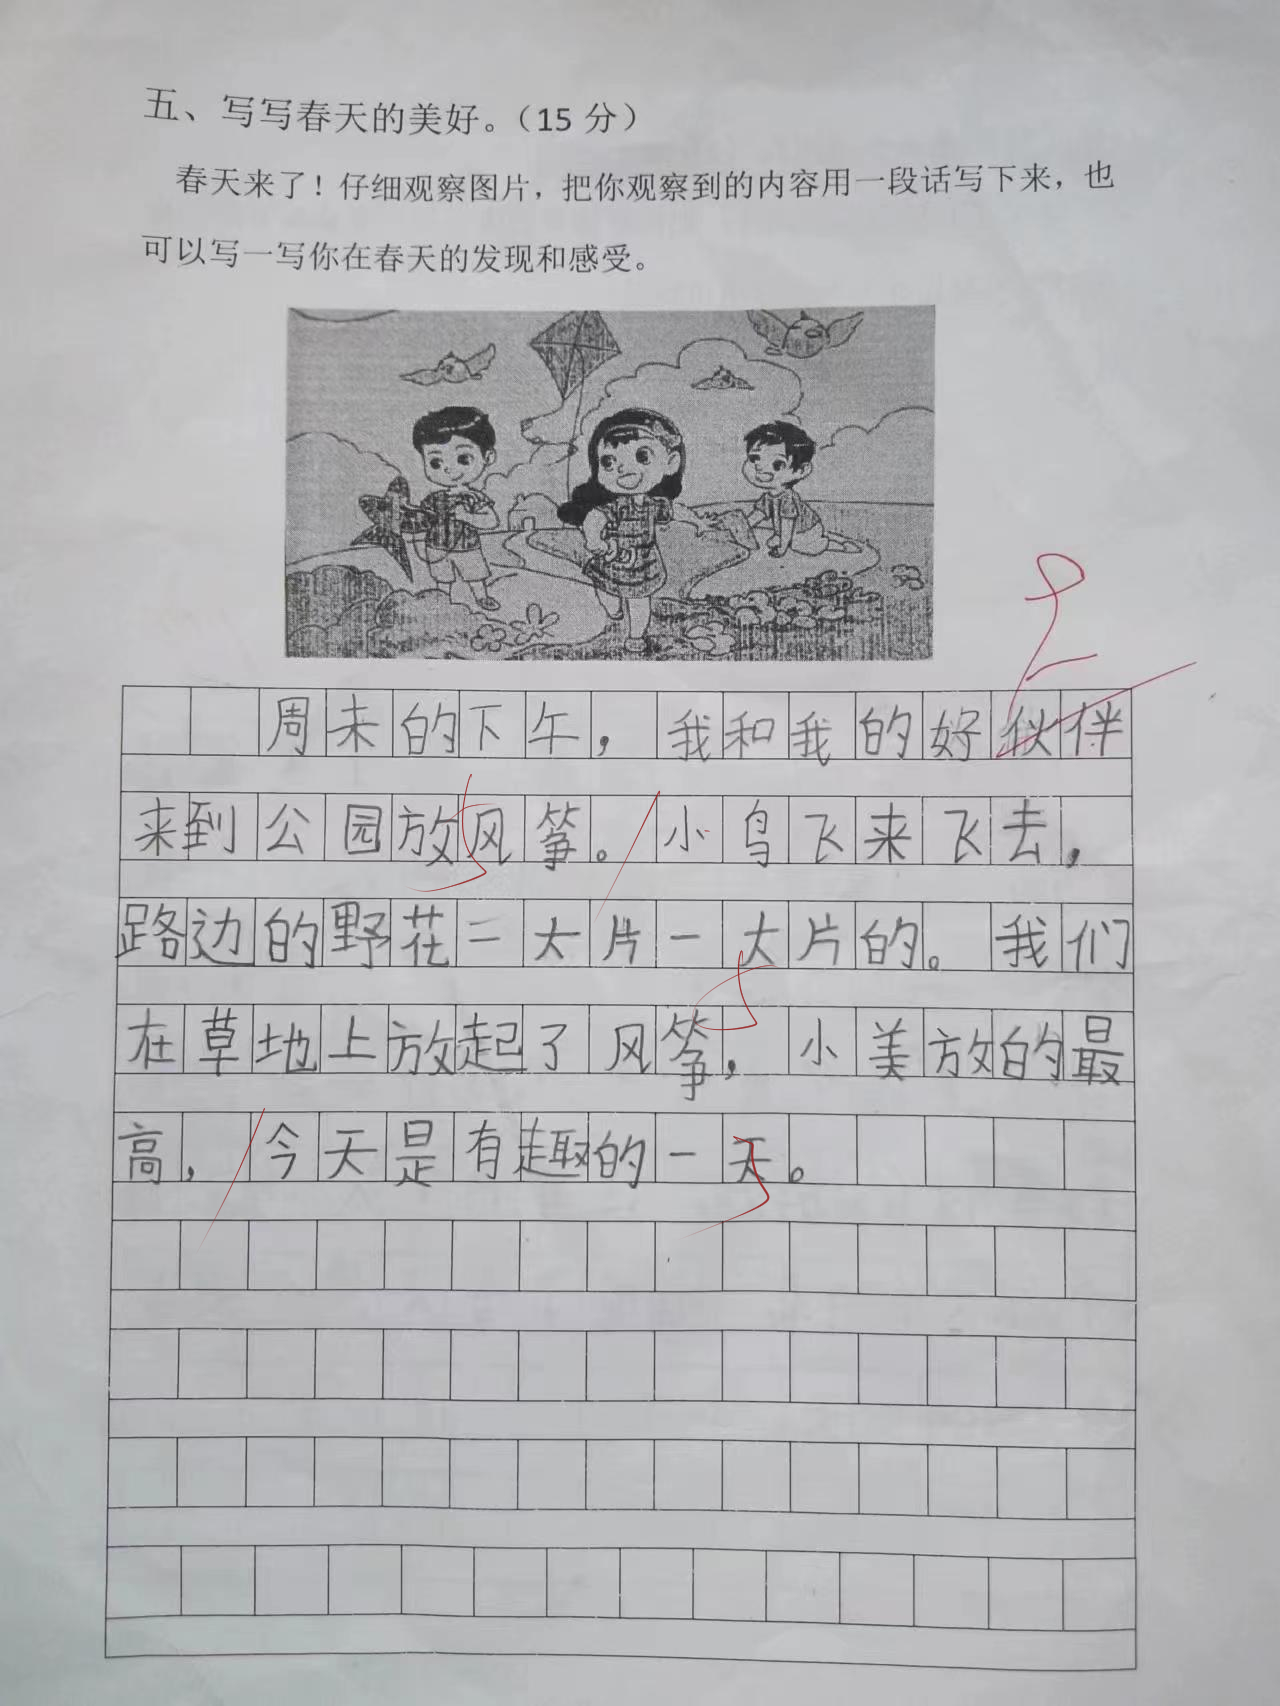 五、写写春天的美好。（15 分）
春天来了！仔细观察图片，把你观察到的内容用一段话写下来，也
可以写一写你在春天的发现和感受。
周未的下午，我和我的好伙伴
来到公园放风筝。小鸟飞来飞去，
路边的野花一大片一大片的。我们
在草地上放起了风筝，小美放的最
高，今天是有趣的一天。